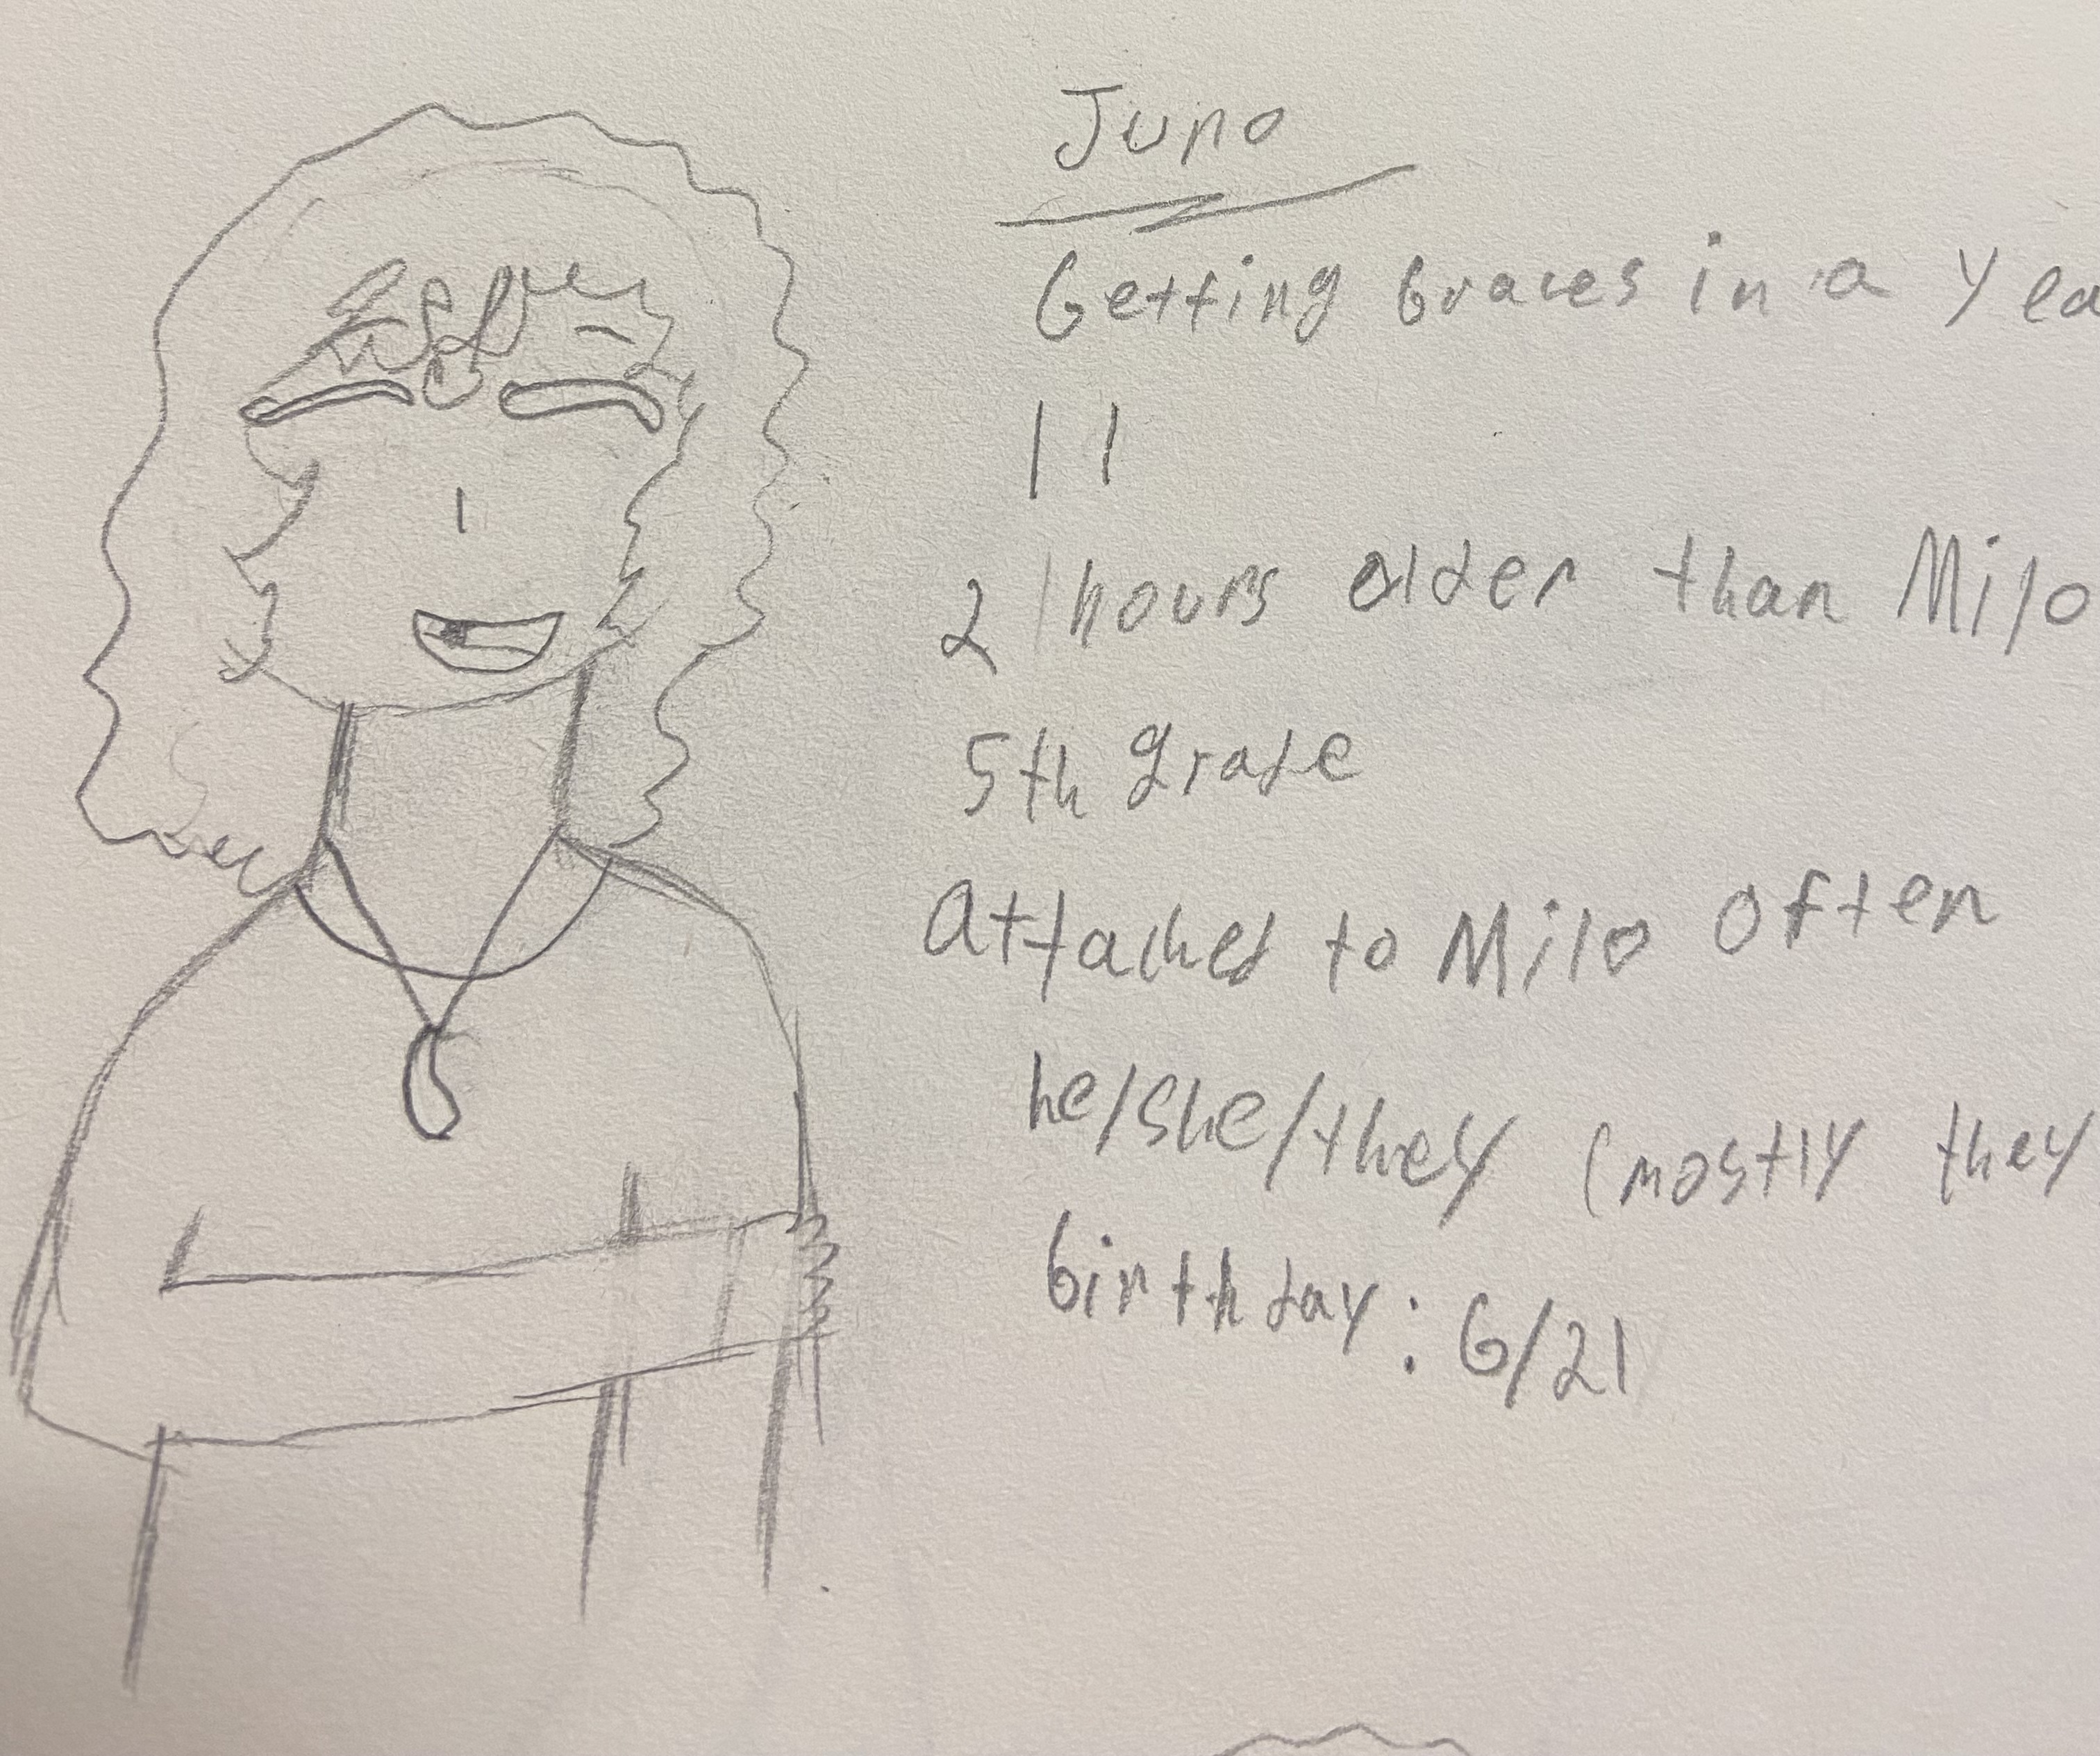 Juno
Getting braces in a yea
11
2 hours older than Milo
5th grade
attached to Milo often
he/she/they (mostly they
birthday: 6/21